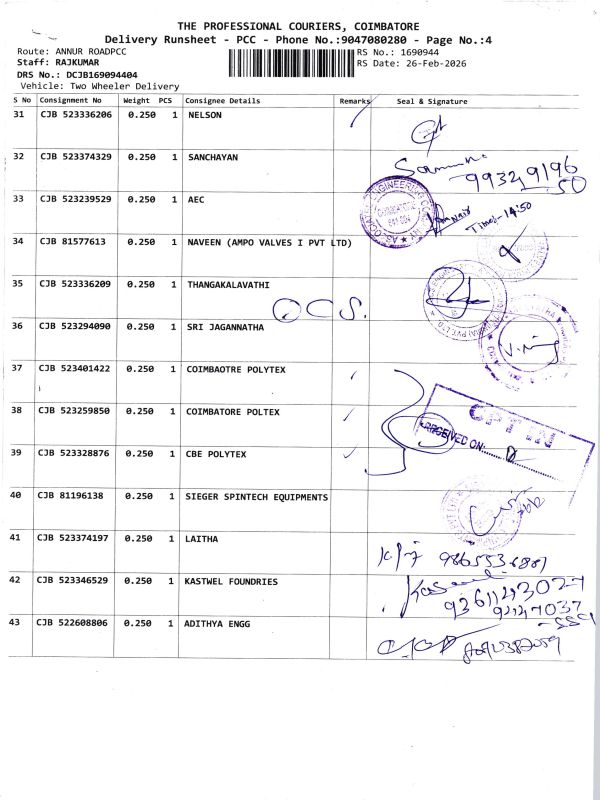 THE PROFESSIONAL COURIERS, COIMBATORE
Delivery Runsheet - PCC - Phone No.:9047080280 - Page No.:4
Route: ANNUR ROADPCC
RS No.: 1690944
Staff: RAJKUMAR
RS Date: 26-Feb-2026
DRS No.: DCJB169094404
Vehicle: Two Wheeler Delivery
S No Consignment No Weight PCS Consignee Details Remarks Seal & Signature
31 CJB 523336206 0.250 1 NELSON
32 CJB 523374329 0.250 1 SANCHAYAN
33 CJB 523239529 0.250 1 AEC
Time:- 14:50
34 CJB 81577613 0.250 1 NAVEEN (AMPO VALVES I PVT LTD)
35 CJB 523336209 0.250 1 THANGAKALAVATHI
O C S.
36 CJB 523294090 0.250 1 SRI JAGANNATHA
37 CJB 523401422 0.250 1 COIMBAOTRE POLYTEX
38 CJB 523259850 0.250 1 COIMBATORE POLTEX
RECEIVED ON:
39 CJB 523328876 0.250 1 CBE POLYTEX
40 CJB 81196138 0.250 1 SIEGER SPINTECH EQUIPMENTS
41 CJB 523374197 0.250 1 LAITHA
42 CJB 523346529 0.250 1 KASTWEL FOUNDRIES
43 CJB 522608806 0.250 1 ADITHYA ENGG